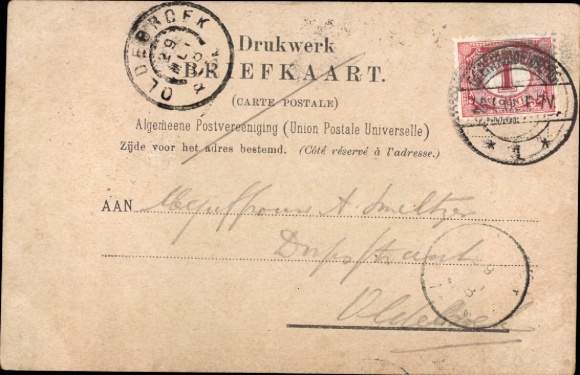 OLDEBROEK
Drukwerk
BRIEFKAART.
(CARTE POSTALE)
Algemeene Postvereeniging (Union Postale Universelle)
Zijde voor het adres bestemd. (Côté réservé à l'adresse.)
1
* 1 *
AAN Mejuffrouw A Smeltzer
Dorpsstraat
Oldebroek